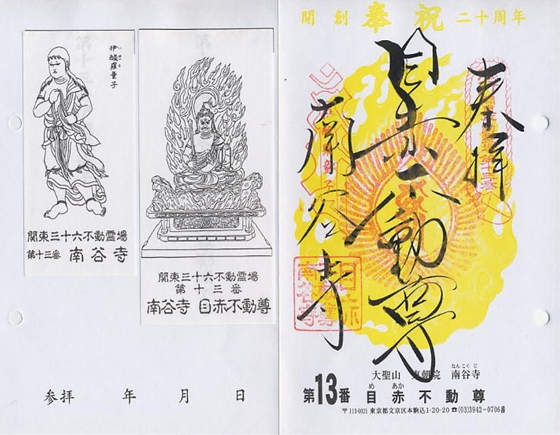 伊醯羅童子
関東三十六不動霊場
第十三番 南谷寺
関東三十六不動霊場
第十三番
南谷寺 目赤不動尊
参拝 年 月 日
開創 奉祝 二十周年
奉拝
目赤不動尊
南谷寺
大聖山 東朝院 南谷寺
なんこくじ
第13番 目赤不動尊
めあか
〒113-0021 東京都文京区本駒込1-20-20 ☎(03)3942-0706番